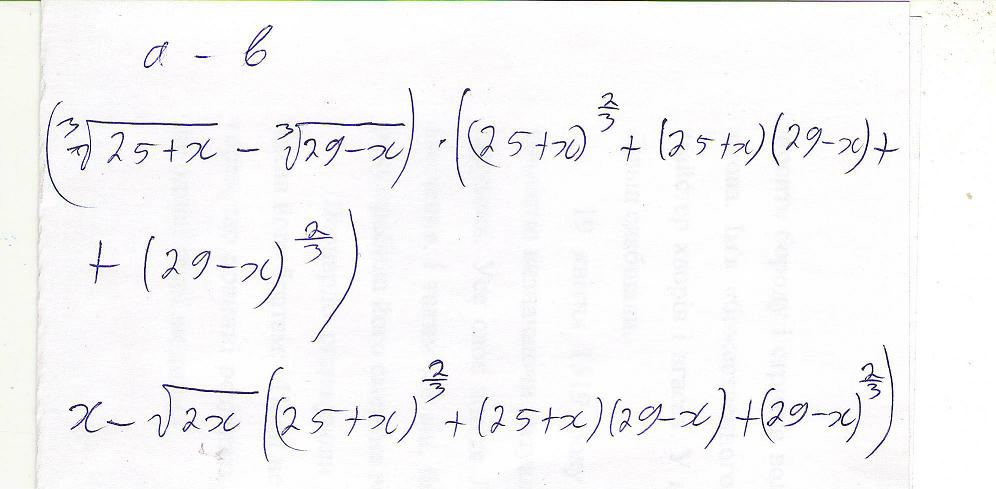 a - b
(∛(25+x) - ∛(29-x)) · ((25+x)^(2/3) + (25+x)(29-x) +
+ (29-x)^(2/3))
x - √(2x) ((25+x)^(2/3) + (25+x)(29-x) + (29-x)^(2/3))